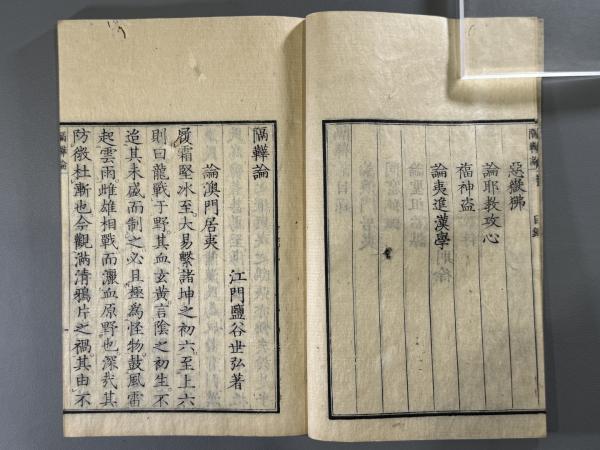 隔鞾論 目錄
惡嶽狒
論耶教攻心
福神盜
論夷進漢學
隔鞾論
江門鹽谷世弘著
論澳門居夷
履霜堅冰至大易繫諸坤之初六至上六
則曰龍戰于野其血玄黃言陰之初生不
迨其未盛而制之必且極為怪物鼓風雷
起雲雨雌雄相戰而灑血原野也深哉其
防微杜漸也今觀滿清鴉片之禍其由不
隔鞾論